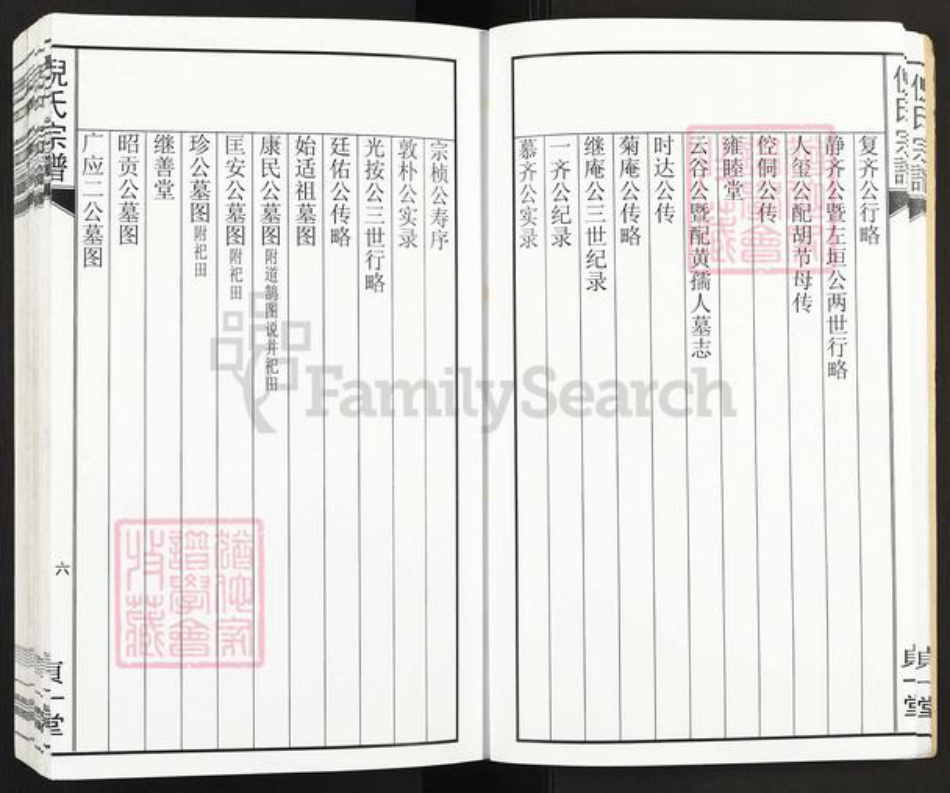 复齐公行略
静齐公暨左垣公两世行略
人玺公配胡节母传
倥侗公传
雍睦堂
云谷公暨配黄孺人墓志
时达公传
菊庵公传略
继庵公三世纪录
一齐公纪录
慕齐公实录
宗桢公寿序
敦朴公实录
光按公三世行略
廷佑公传略
始适祖墓图
康民公墓图 附道鹄图说井祀田
匡安公墓图 附祀田
珍公墓图 附祀田
继善堂
昭贡公墓图
广应二公墓图
倪氏宗谱
六
貞一堂
FamilySearch